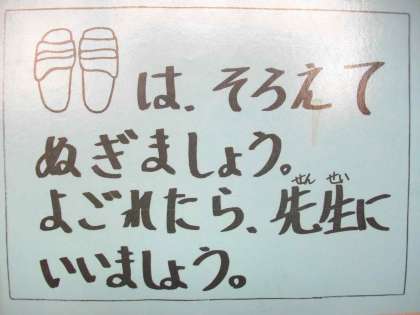 は、そろえて
ぬぎましょう。
よごれたら、先生に
せんせい
いいましょう。